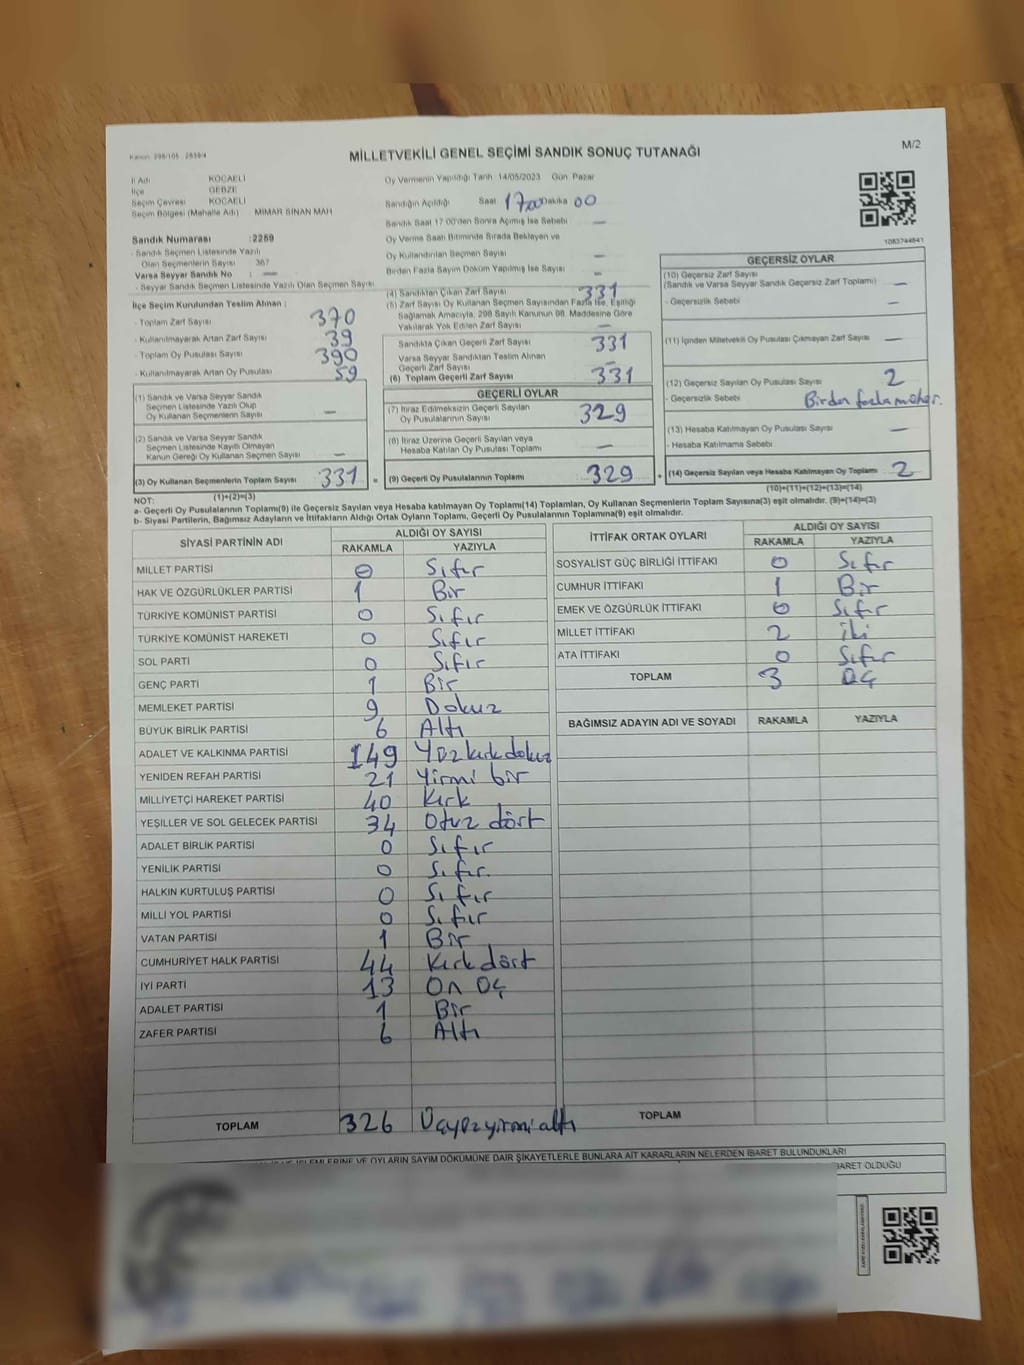 Kanun: 298/105 - 2839/4
MİLLETVEKİLİ GENEL SEÇİMİ SANDIK SONUÇ TUTANAĞI
M/2
İl Adı KOCAELİ
İlçe GEBZE
Seçim Çevresi KOCAELİ
Seçim Bölgesi (Mahalle Adı) MİMAR SİNAN MAH
Sandık Numarası :2259
- Sandık Seçmen Listesinde Yazılı
Olan Seçmenlerin Sayısı 367
Varsa Seyyar Sandık No : —
- Seyyar Sandık Seçmen Listesinde Yazılı Olan Seçmen Sayısı
İlçe Seçim Kurulundan Teslim Alınan :
- Toplam Zarf Sayısı 370
- Kullanılmayarak Artan Zarf Sayısı 39
- Toplam Oy Pusulası Sayısı 390
- Kullanılmayarak Artan Oy Pusulası 59
(1) Sandık ve Varsa Seyyar Sandık
Seçmen Listesinde Yazılı Olup
Oy Kullanan Seçmenlerin Sayısı —
(2) Sandık ve Varsa Seyyar Sandık
Seçmen Listesinde Kayıtlı Olmayan
Kanun Gereği Oy Kullanan Seçmen Sayısı —
(3) Oy Kullanan Seçmenlerin Toplam Sayısı 331
(1)+(2)=(3)
Oy Vermenin Yapıldığı Tarih 14/05/2023 Gün Pazar
Sandığın Açıldığı Saat 17:00 Dakika 00
Sandık Saat 17:00'den Sonra Açılmış İse Sebebi —
Oy Verme Saati Bitiminde Sırada Bekleyen ve
Oy Kullandırılan Seçmen Sayısı —
Birden Fazla Sayım Döküm Yapılmış İse Sayısı —
(4) Sandıktan Çıkan Zarf Sayısı 331
(5) Zarf Sayısı Oy Kullanan Seçmen Sayısından Fazla İse, Eşitliği
Sağlamak Amacıyla, 298 Sayılı Kanunun 98. Maddesine Göre
Yakılarak Yok Edilen Zarf Sayısı —
Sandıkta Çıkan Geçerli Zarf Sayısı 331
Varsa Seyyar Sandıktan Teslim Alınan
Geçerli Zarf Sayısı —
(6) Toplam Geçerli Zarf Sayısı 331
GEÇERLİ OYLAR
(7) İtiraz Edilmeksizin Geçerli Sayılan
Oy Pusulalarının Toplamı 329
(8) İtiraz Üzerine Geçerli Sayılan veya
Hesaba Katılan Oy Pusulası Toplamı —
= (9) Geçerli Oy Pusulalarının Toplamı 329 +
1083744841
GEÇERSİZ OYLAR
(10) Geçersiz Zarf Sayısı
(Sandık ve Varsa Seyyar Sandık Geçersiz Zarf Toplamı) —
- Geçersizlik Sebebi —
(11) İçinden Milletvekili Oy Pusulası Çıkmayan Zarf Sayısı —
(12) Geçersiz Sayılan Oy Pusulası Sayısı 2
- Geçersizlik Sebebi Birden fazla mühür.
(13) Hesaba Katılmayan Oy Pusulası Sayısı —
- Hesaba Katılmama Sebebi
(14) Geçersiz Sayılan veya Hesaba Katılmayan Oy Toplamı 2
(10)+(11)+(12)+(13)=(14)
NOT:
a- Geçerli Oy Pusulalarının Toplamı(9) ile Geçersiz Sayılan veya Hesaba katılmayan Oy Toplamı(14) Toplamları, Oy Kullanan Seçmenlerin Toplam Sayısına(3) eşit olmalıdır. (9)+(14)=(3)
b- Siyasi Partilerin, Bağımsız Adayların ve İttifakların Aldığı Ortak Oyların Toplamı, Geçerli Oy Pusulalarının Toplamına(9) eşit olmalıdır.
SİYASİ PARTİNİN ADI ALDIĞI OY SAYISI
RAKAMLA YAZIYLA
MİLLET PARTİSİ 0 Sıfır
HAK VE ÖZGÜRLÜKLER PARTİSİ 1 Bir
TÜRKİYE KOMÜNİST PARTİSİ 0 Sıfır
TÜRKİYE KOMÜNİST HAREKETİ 0 Sıfır
SOL PARTİ 0 Sıfır
GENÇ PARTİ 1 Bir
MEMLEKET PARTİSİ 9 Dokuz
BÜYÜK BİRLİK PARTİSİ 6 Altı
ADALET VE KALKINMA PARTİSİ 149 Yüzkırkdokuz
YENİDEN REFAH PARTİSİ 21 Yirmi bir
MİLLİYETÇİ HAREKET PARTİSİ 40 Kırk
YEŞİLLER VE SOL GELECEK PARTİSİ 34 Otuz dört
ADALET BİRLİK PARTİSİ 0 Sıfır
YENİLİK PARTİSİ 0 Sıfır.
HALKIN KURTULUŞ PARTİSİ 0 Sıfır
MİLLİ YOL PARTİSİ 0 Sıfır
VATAN PARTİSİ 1 Bir
CUMHURİYET HALK PARTİSİ 44 Kırkdört
İYİ PARTİ 13 On üç
ADALET PARTİSİ 1 Bir
ZAFER PARTİSİ 6 Altı
TOPLAM 326 Üçyüzyirmialtı
İTTİFAK ORTAK OYLARI ALDIĞI OY SAYISI
RAKAMLA YAZIYLA
SOSYALİST GÜÇ BİRLİĞİ İTTİFAKI 0 Sıfır
CUMHUR İTTİFAKI 1 Bir
EMEK VE ÖZGÜRLÜK İTTİFAKI 0 Sıfır
MİLLET İTTİFAKI 2 İki
ATA İTTİFAKI 0 Sıfır
TOPLAM 3 Üç
BAĞIMSIZ ADAYIN ADI VE SOYADI RAKAMLA YAZIYLA
TOPLAM
İŞLEMLERİNE VE OYLARIN SAYIM DÖKÜMÜNE DAİR ŞİKAYETLERLE BUNLARA AİT KARARLARIN NELERDEN İBARET BULUNDUKLARI
İBARET OLDUĞU